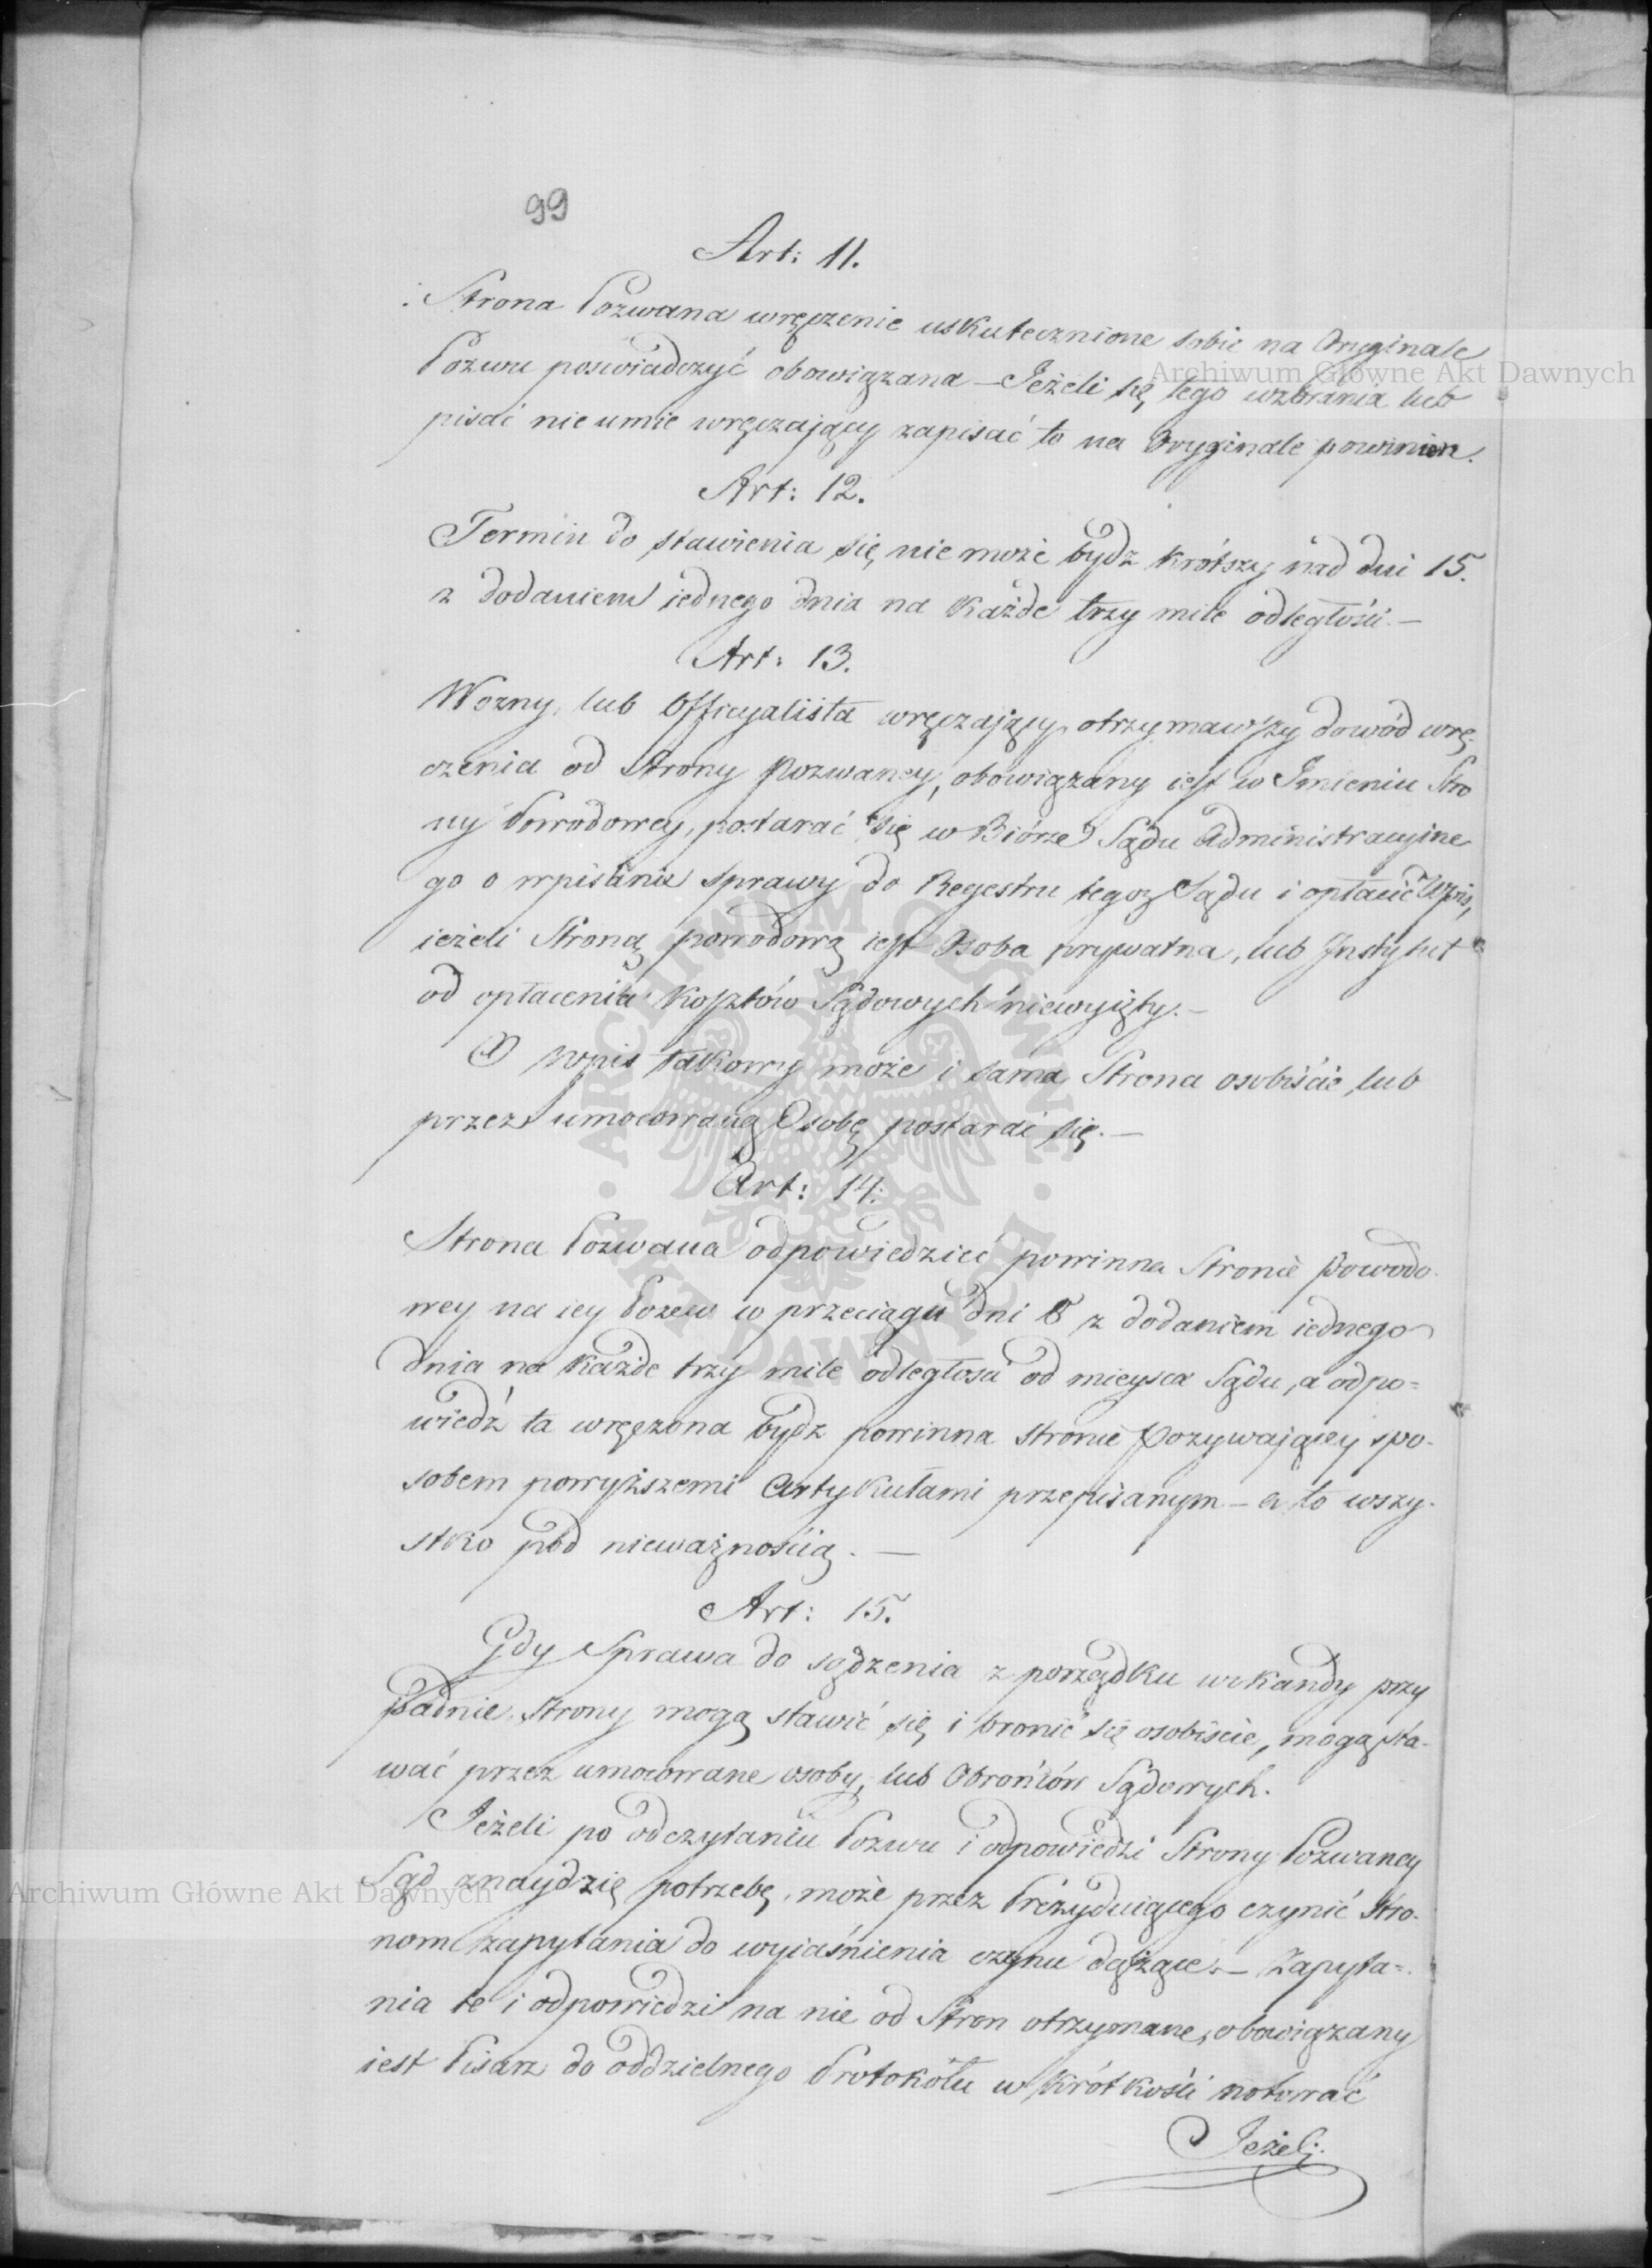 99
Art: 11.
Strona Pozwana wręczenie uskutecznione sobie na Oryginale
Pozwu poswiadczyć obowiązana – Jeżeli się tego wzbrania lub
pisać nie umie wręczający zapisać to na Oryginale powinien.
Art: 12.
Termin do stawienia się nie może bydz krótszy nad dni 15.
z dodaniem iednego dnia na każde trzy mile odległości. –
Art: 13.
Wozny, lub Officyalista wręczający, otrzymawszy dowód wrę-
czenia od Strony Pozwaney, obowiązany iest w Imieniu Stro
ny Powodowey, postarać się w Biórze Sądu Administracyine
go o wpisanie sprawy do Regestru tegoz Sądu i opłacić Wpis,
ieżeli Stroną powodową iest Osoba prywatna, lub Instytut
od opłacenia Kosztów Sądowych niewyięty. –
O wpis takowy może i sama Strona osobiście lub
przez umocowaną Osobę postarać się. –
Art: 14.
Strona Pozwana odpowiedzieć powinna Stronie Powodo-
wey na iey Pozew w przeciągu dni 8 z dodaniem iednego
dnia na każde trzy mile odległości od mieysca Sądu, a odpo=
wiedź ta wręczona bydz powinna stronie Pozywaiącey spo-
sobem powyższemi Artykułami przepisanym – a to wszy-
stko pod nieważnością. –
Art: 15.
Gdy Sprawa do sądzenia z porządku wokandy przy
padnie, Strony mogą stawić się i bronić się osobiście, mogą sta-
wać przez umocowane osoby, lub Obrońców Sądowych.
Jeżeli po odczytaniu Pozwu i odpowiedzi Strony Pozwaney
Sąd znaydzie potrzebę, może przez Prezyduiącego czynić Stro-
nom zapytania do wyiaśnienia czynu dążące. – Zapyta=
nia te i odpowiedzi na nie od Stron otrzymane, obowiązany
iest Pisarz do oddzielnego Protokółu w krótkości notować
Jeżeli
Archiwum Główne Akt Dawnych
Archiwum Główne Akt Dawnych
ARCHIWUM GŁÓWNE AKT DAWNYCH